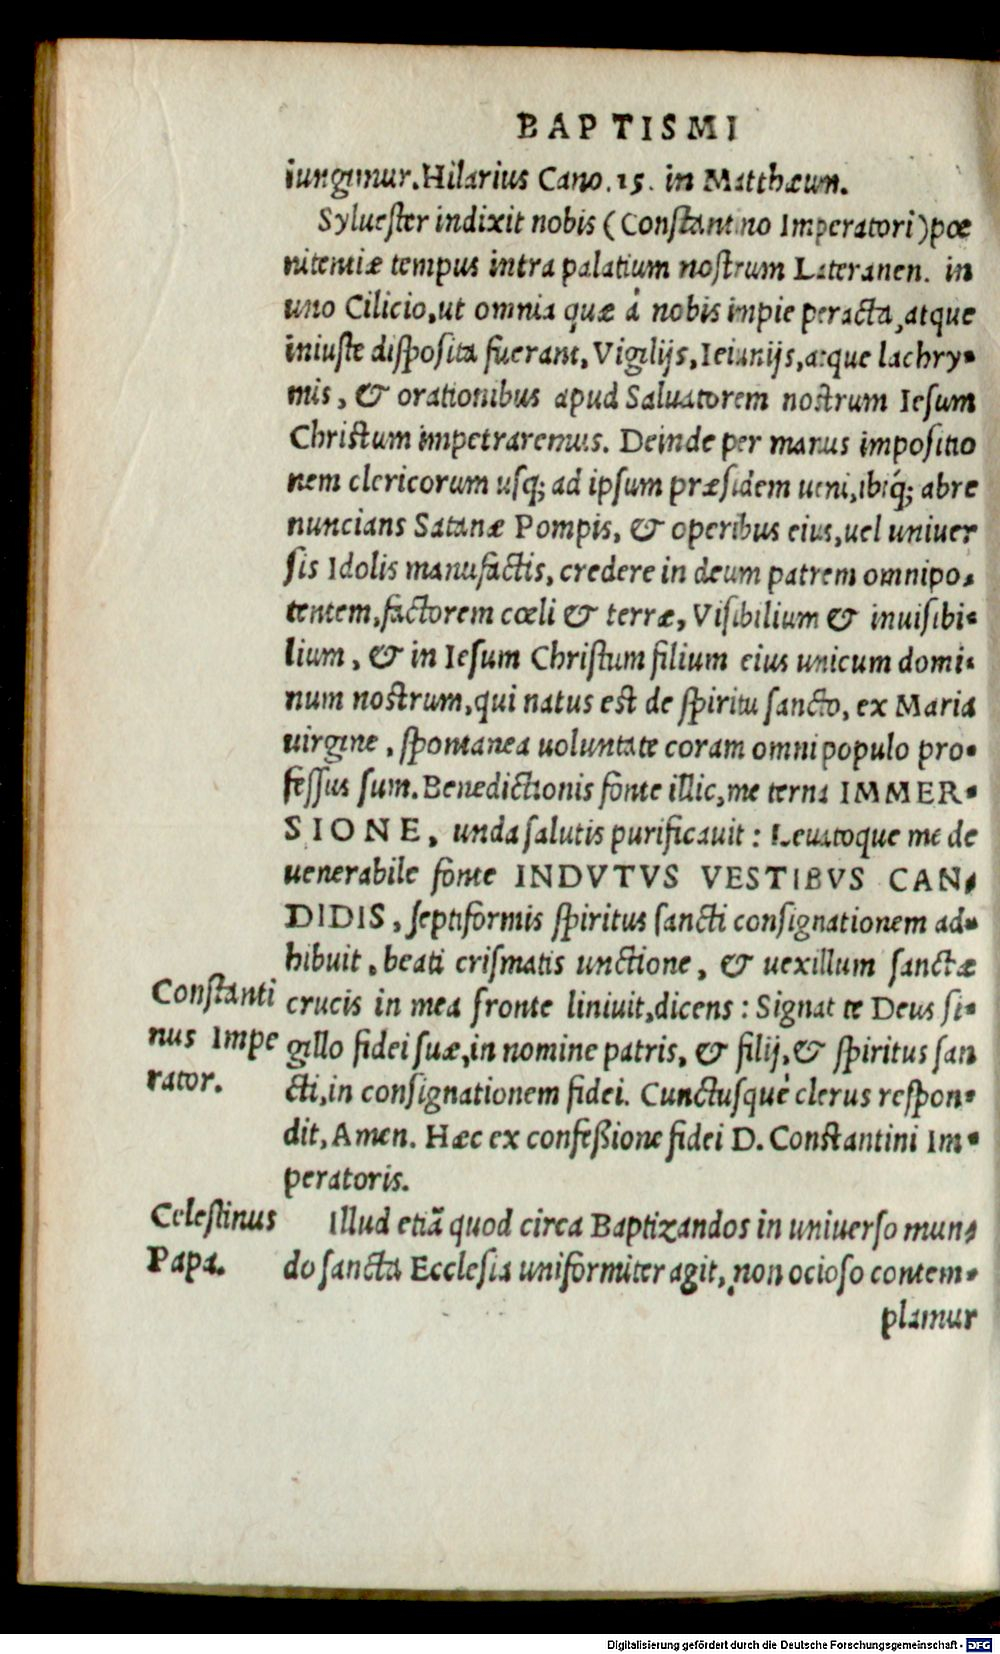 BAPTISMI
iungimur. Hilarius Cano. 15. in Matthæum.
Syluester indixit nobis (Constantino Imperatori) pœ
nitentiæ tempus intra palatium nostrum Lateranen. in
uno Cilicio, ut omnia quæ à nobis impie peracta, atque
iniuste disposita fuerant, Vigilijs, Ieiunijs, atque lachry-
mis, & orationibus apud Saluatorem nostrum Iesum
Christum impetraremus. Deinde per manus impositio
nem clericorum usq; ad ipsum præsidem ueni, ibiq́; abre
nuncians Satanæ Pompis, & operibus eius, uel uniuer
sis Idolis manufactis, credere in deum patrem omnipo-
tentem, factorem cœli & terræ, Visibilium & inuisibi-
lium, & in Iesum Christum filium eius unicum domi-
num nostrum, qui natus est de spiritu sancto, ex Maria
uirgine, spontanea uoluntate coram omni populo pro-
fessus sum. Benedictionis fonte illic, me terna IMMER-
SIONE, unda salutis purificauit: Leuatoque me de
uenerabile fonte INDVTVS VESTIBVS CAN-
DIDIS, septiformis spiritus sancti consignationem ad-
hibuit, beati crismatis unctione, & uexillum sanctæ
Constanti
nus Impe
rator.
crucis in mea fronte liniuit, dicens: Signat te Deus si-
gillo fidei suæ, in nomine patris, & filij, & spiritus san
cti, in consignationem fidei. Cunctusquè clerus respon-
dit, Amen. Hæc ex confeßione fidei D. Constantini Im-
peratoris.
Celestinus
Papa.
Illud etiã quod circa Baptizandos in uniuerso mun-
do sancta Ecclesia uniformiter agit, non ocioso contem-
plamur
Digitalisierung gefördert durch die Deutsche Forschungsgemeinschaft - DFG